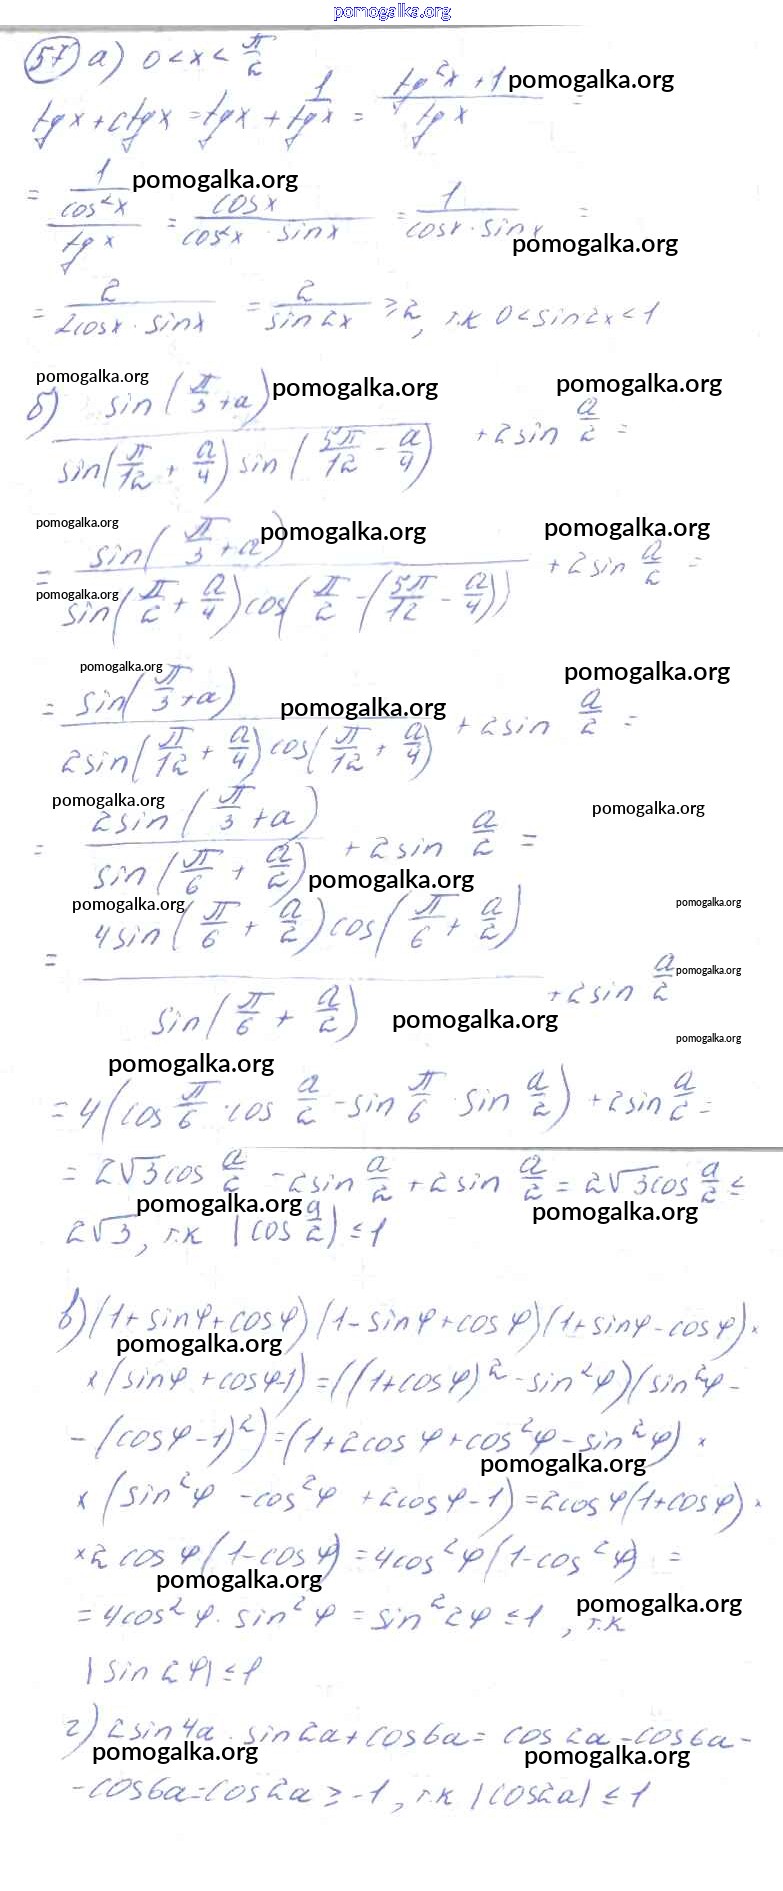 pomogalka.org
57 а) 0 < x < π/2 pomogalka.org
tgx + ctgx = tgx + 1/tgx = (tg²x + 1)/tgx =
pomogalka.org
= (1/cos²x)/tgx = cosx/(cos²x · sinx) = 1/(cosx · sinx) =
pomogalka.org
= 2/(2cosx · sinx) = 2/sin2x ≥ 2, т.к 0 < sin2x < 1
pomogalka.org pomogalka.org pomogalka.org
б) sin(π/3 + a)/(sin(π/12 + a/4) sin(5π/12 - a/4)) + 2sin a/2 =
pomogalka.org pomogalka.org pomogalka.org
= sin(π/3 + a)/(sin(π/2 + a/4) cos(π/2 - (5π/12 - a/4))) + 2sin a/2 =
pomogalka.org
pomogalka.org pomogalka.org
= sin(π/3 + a)/(2sin(π/12 + a/4) cos(π/12 + a/4)) + 2sin a/2 =
pomogalka.org
pomogalka.org pomogalka.org
= 2sin(π/3 + a)/sin(π/6 + a/2) + 2sin a/2 =
pomogalka.org
pomogalka.org pomogalka.org
= 4sin(π/6 + a/2) cos(π/6 + a/2)/sin(π/6 + a/2) + 2sin a/2
pomogalka.org
pomogalka.org
pomogalka.org
pomogalka.org
= 4(cos π/6 · cos a/2 - sin π/6 · sin a/2) + 2sin a/2 =
= 2√3cos a/2 - 2sin a/2 + 2sin a/2 = 2√3cos a/2 ≤
pomogalka.org pomogalka.org
2√3, т.к |cos a/2| ≤ 1
в) (1 + sinφ + cosφ)(1 - sinφ + cosφ)(1 + sinφ - cosφ) ×
pomogalka.org
× (sinφ + cosφ - 1) = ((1 + cosφ)² - sin²φ)(sin²φ -
- (cosφ - 1)²) = (1 + 2cosφ + cos²φ - sin²φ) ×
pomogalka.org
× (sin²φ - cos²φ + 2cosφ - 1) = 2cosφ(1 + cosφ) ×
× 2cosφ(1 - cosφ) = 4cos²φ(1 - cos²φ) =
pomogalka.org
pomogalka.org
= 4cos²φ · sin²φ = sin²2φ ≤ 1, т.к
|sin2φ| ≤ 1
г) 2sin4a · sin2a + cos6a = cos2a - cos6a -
pomogalka.org pomogalka.org
- cos6a = cos2a ≥ -1, т.к |cos2a| ≤ 1